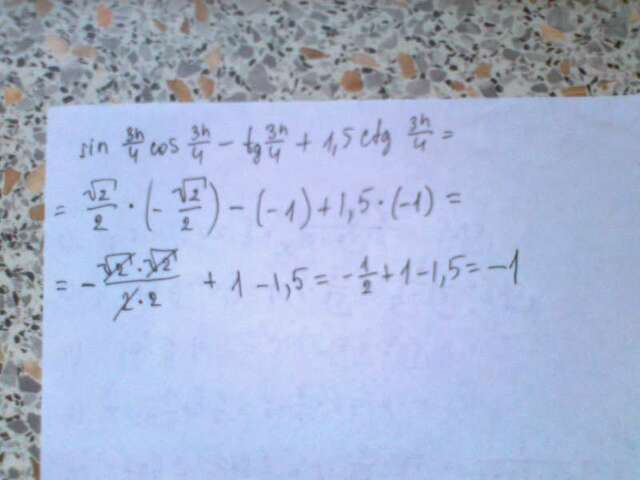 sin 3π/4 cos 3π/4 - tg 3π/4 + 1,5 ctg 3π/4 =
= √2/2 · (-√2/2) - (-1) + 1,5 · (-1) =
= - √2·√2/2·2 + 1 - 1,5 = -1/2 + 1 - 1,5 = -1